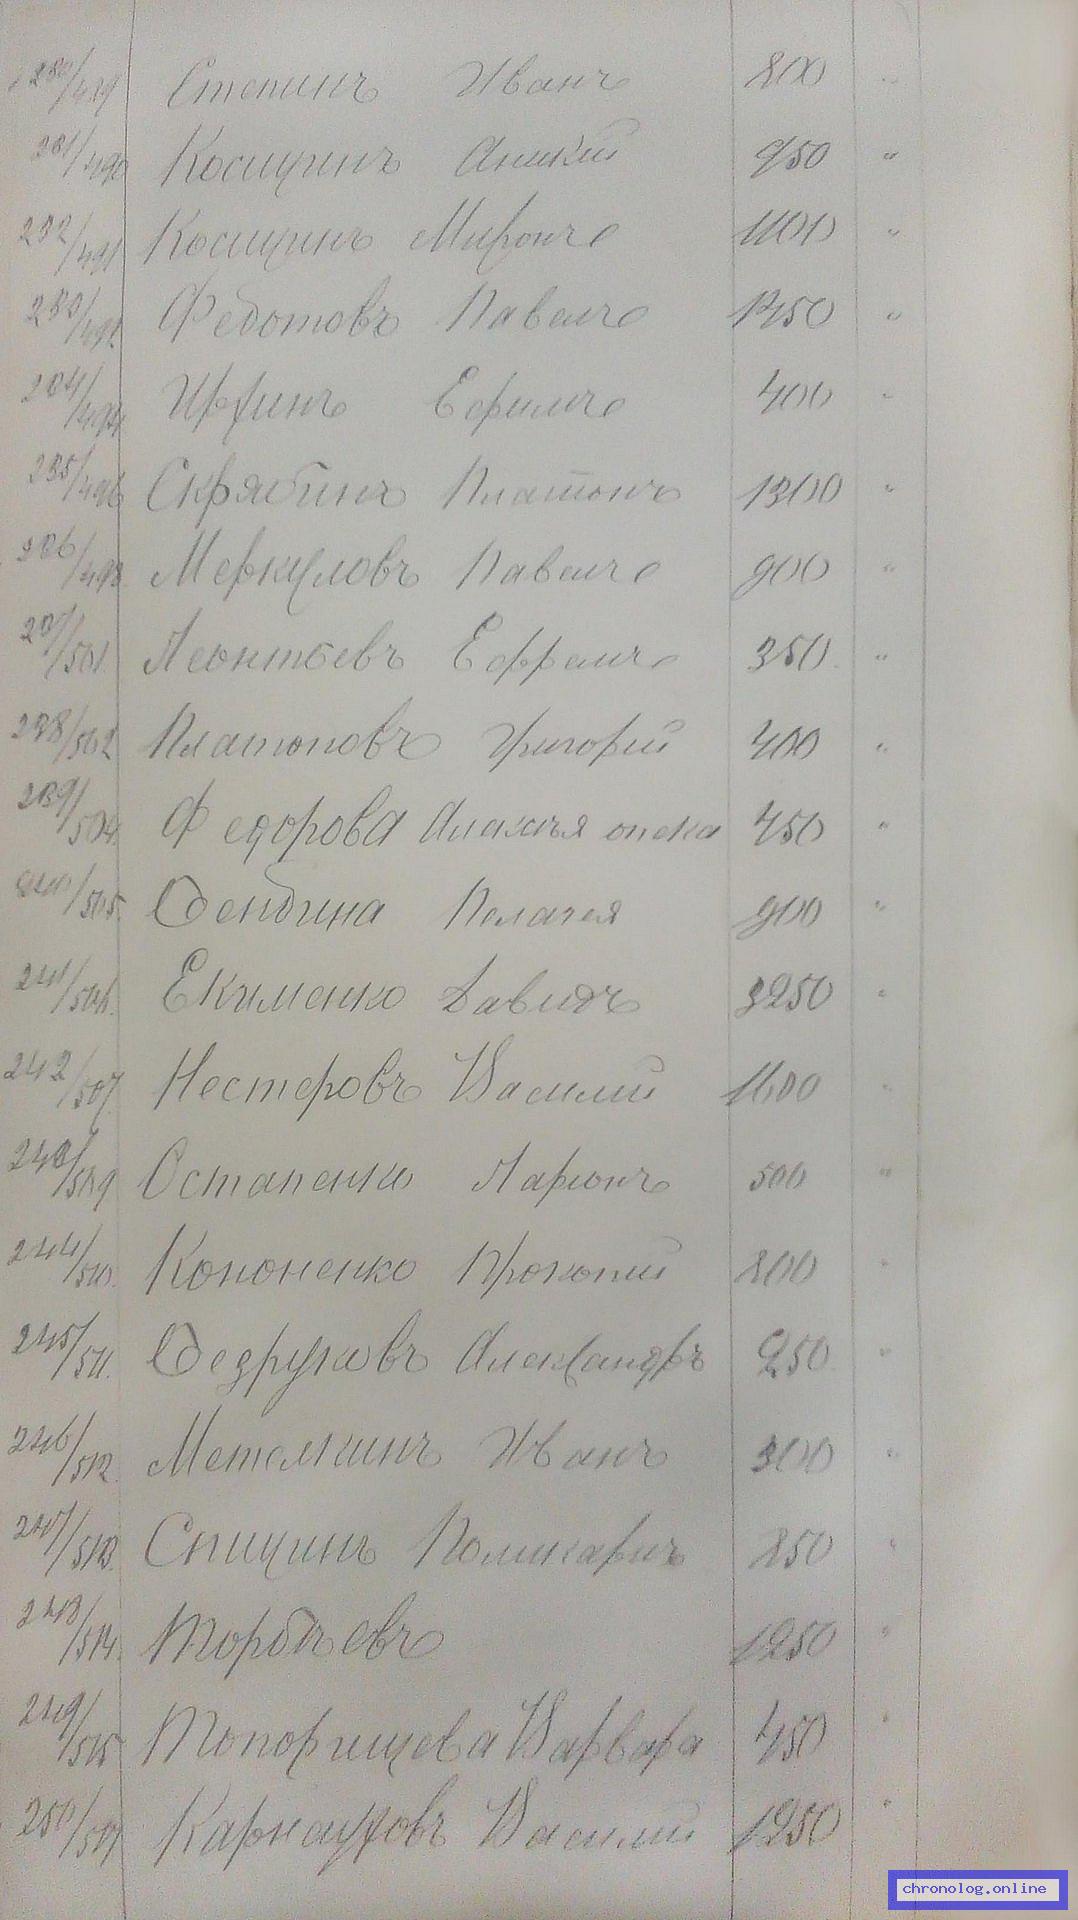 230/489 Степинъ Иванъ 800 "
231/490 Косицинъ Аникий 950 "
232/491 Косицинъ Миронъ 1100 "
233/492. Федотовъ Павелъ 1350 "
234/494. Ефимъ 400 "
235/496 Скрябинъ Платонъ 1300 "
236/498. Меркуловъ Павелъ 900 "
237/501. Леонтьевъ Ефремъ 350 "
238/502 Платоновъ Григорий 400 "
239/504. Федорова опека 450 "
240/505. Сендина Пелагея 900 "
241/506. Екименко Давидъ 3250 "
242/507. Нестеровъ Василий 1600 "
243/509 Остапенко Ларионъ 500 "
244/510. Кононенко Прокопий 800 "
245/511. Александръ 950 "
246/512. Метелкинъ Иванъ 300 "
247/513. Спицинъ Поликарпъ 850 "
248/514. Торбѣевъ 1250 "
249/515 Топорищева Варвара 450 "
250/517 Карнауховъ Василий 1250 "
chronolog.online